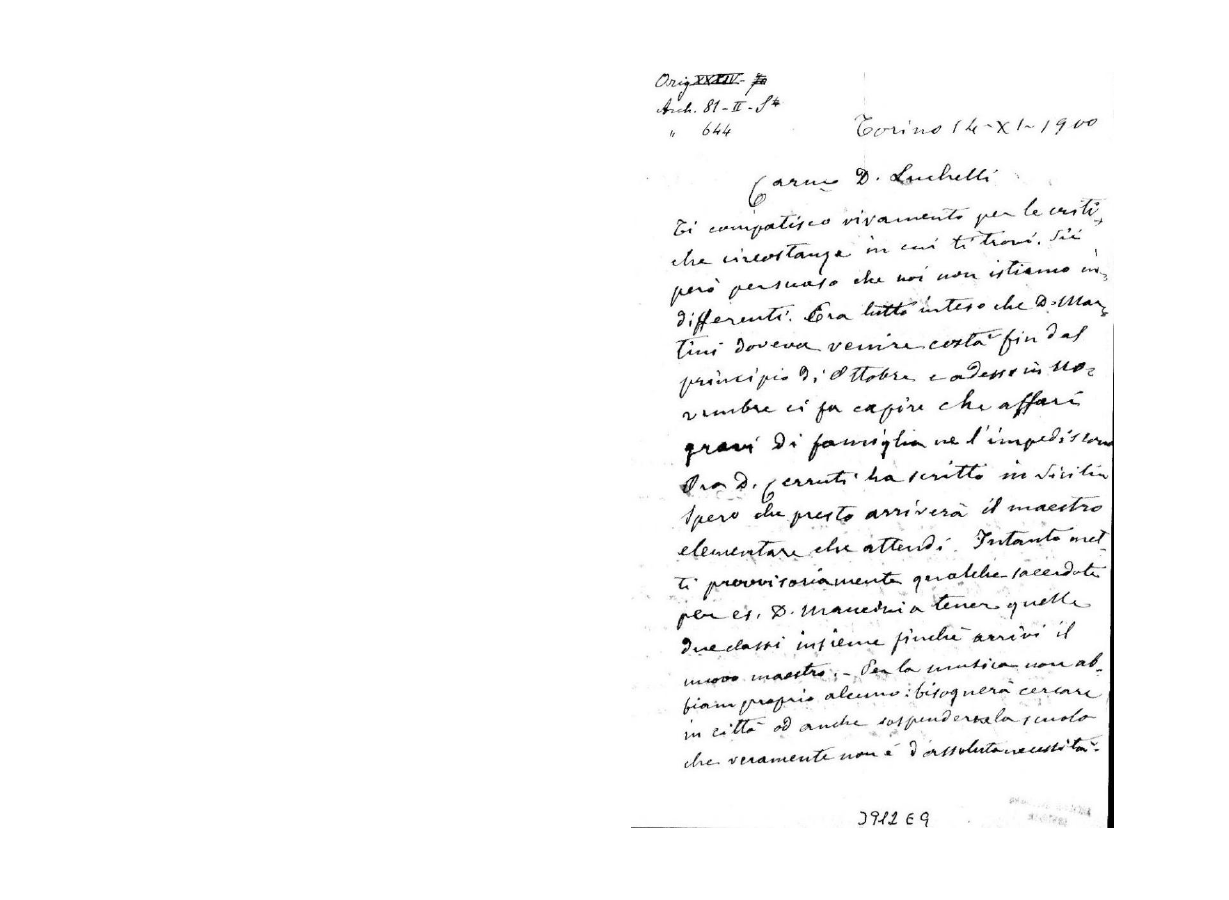 Orig XXXIV -
Arch. 81 - II - S4
" 644
Torino 14-XI-1900
Carmo D. Luchelli
Ti compatisco vivamente per le criti,
che circostanze in cui ti trovi. Sii
però persuaso che noi non istiamo in,
differenti. Era tutto inteso che D. Mar,
tini doveva venire costà fin dal
principio di Ottobre e adesso in No,
vembre ci fa capire che affari
gravi di famiglia ne l'impediscono
Ora D. Cerruti ha scritto in Sicilia
Spero che presto arriverà il maestro
elementare che attendi. Intanto met-
ti provvisoriamente qualche sacerdote
per es. D. Mancini a tener quelle
due classi insieme finchè arrivi il
nuovo maestro. - Per la musica non ab-
biam proprio alcuno: bisognerà cercare
in città od anche sospendere la scuola
che veramente non è d'assoluta necessità -
3912 E 9